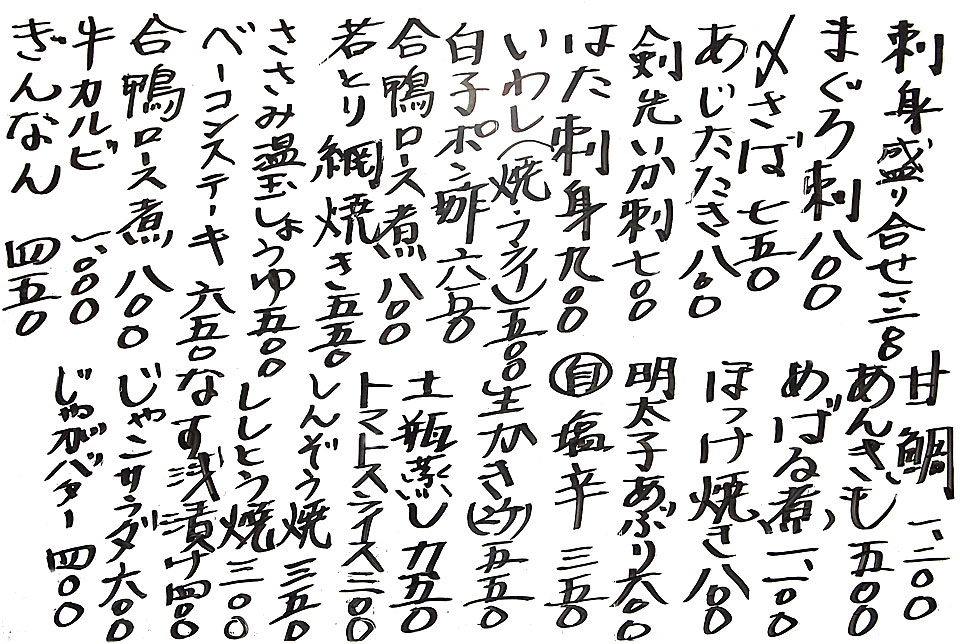 刺身盛り合せ一、三〇〇
まぐろ刺八〇〇
〆さば 七五〇
あじたたき八〇〇
剣先いか刺七〇〇
はた刺身九〇〇
いわし(焼・フライ)五〇〇
白子ポン酢 六五〇
合鴨ロース煮八〇〇
若とり網焼き五五〇
ささみ温玉しょうゆ五〇〇
ベーコンステーキ 六五〇
合鴨ロース煮 八〇〇
牛カルビ 一、〇〇〇
ぎんなん 四五〇
甘鯛 一、二〇〇
あんきも 五〇〇
めばる煮 一、一〇〇
ほっけ焼き八〇〇
明太子あぶり六〇〇
自塩辛 三五〇
生かき(2ケ)五五〇
土瓶蒸し 九五〇
トマトスライス三〇〇
しんぞう焼 三五〇
ししとう焼 三〇〇
なす浅漬け四〇〇
じゃこサラダ六〇〇
じゃがバター 四〇〇